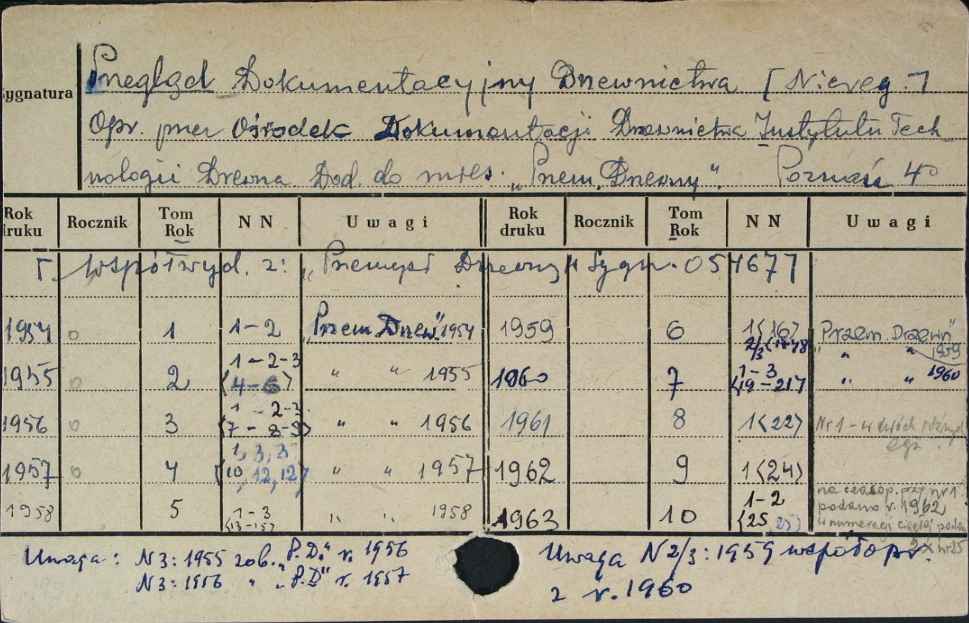 Sygnatura
Przegląd Dokumentacyjny Drzewnictwa [Niereg.]
Opr. przez Ośrodek Dokumentacji Drzewnictwa Instytutu Tech
nologii Drewna. Dod. do mies. "Przem. Drzewny". Poznań 4°
Rok druku Rocznik Tom Rok NN Uwagi Rok druku Rocznik Tom Rok NN Uwagi
współwyd. z: "Przemysł Drzewny" Sygn. 054677
1954 0 1 1-2 "Przem Drzew." 1954 1959 6 1<16> 2/3 "Przem Drzewn" 1959
1955 0 2 1-2-3 <4-6> " " 1955 1960 7 1-3 <19-21> " " 1960
1956 0 3 1-2-3 <7-8-9> " " 1956 1961 8 1<22> Nr 1 - w dwóch
egz.
1957 0 4 1,3,3 <10,12,12> " " 1957 1962 9 1<24>
1958 5 1-3 <13-15> " " 1958 1963 10 1-2 <25 25> na czasop. przy nr 1
podano r. 1962
w numeracji ciągłej
2x nr 25
Uwaga: N3: 1955 zob. "P.D." r. 1956
N3: 1956 " "P.D" r. 1957
Uwaga N 2/3: 1959 współopr.
z r. 1960